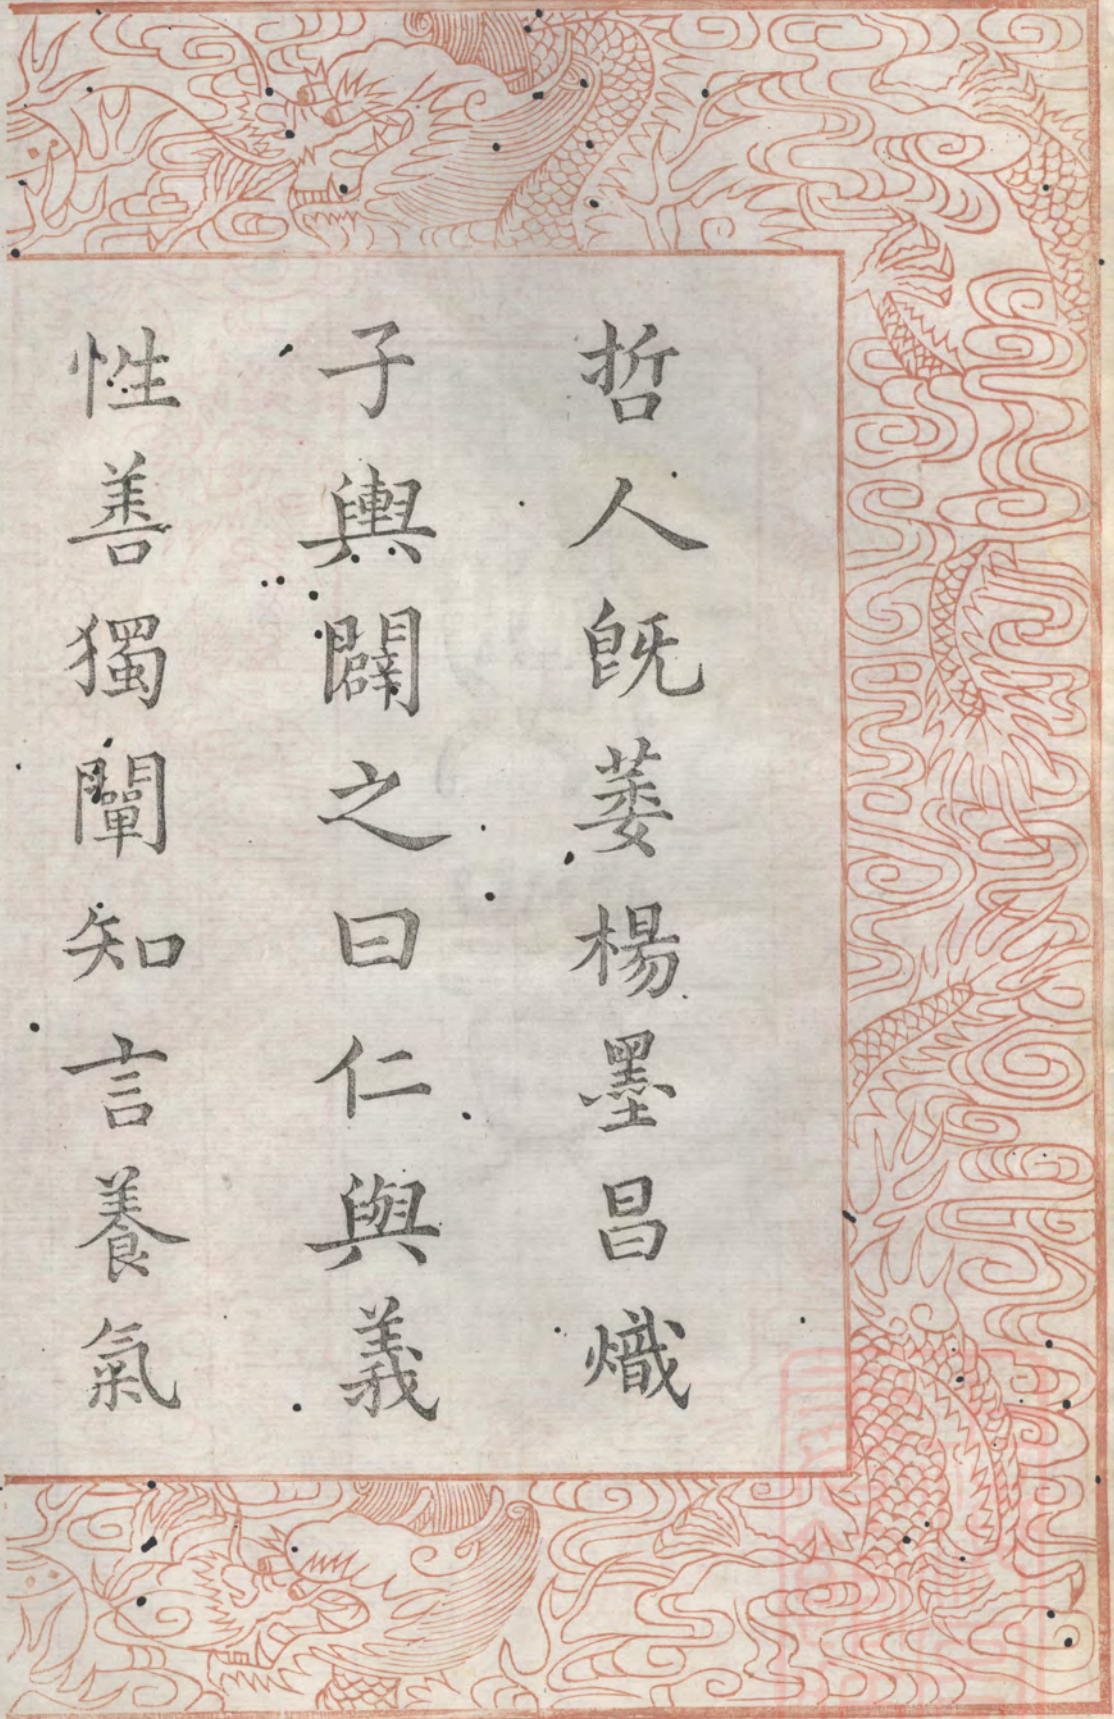 哲人旣萎楊墨昌熾
子輿闢之曰仁與義
性善獨闡知言養氣